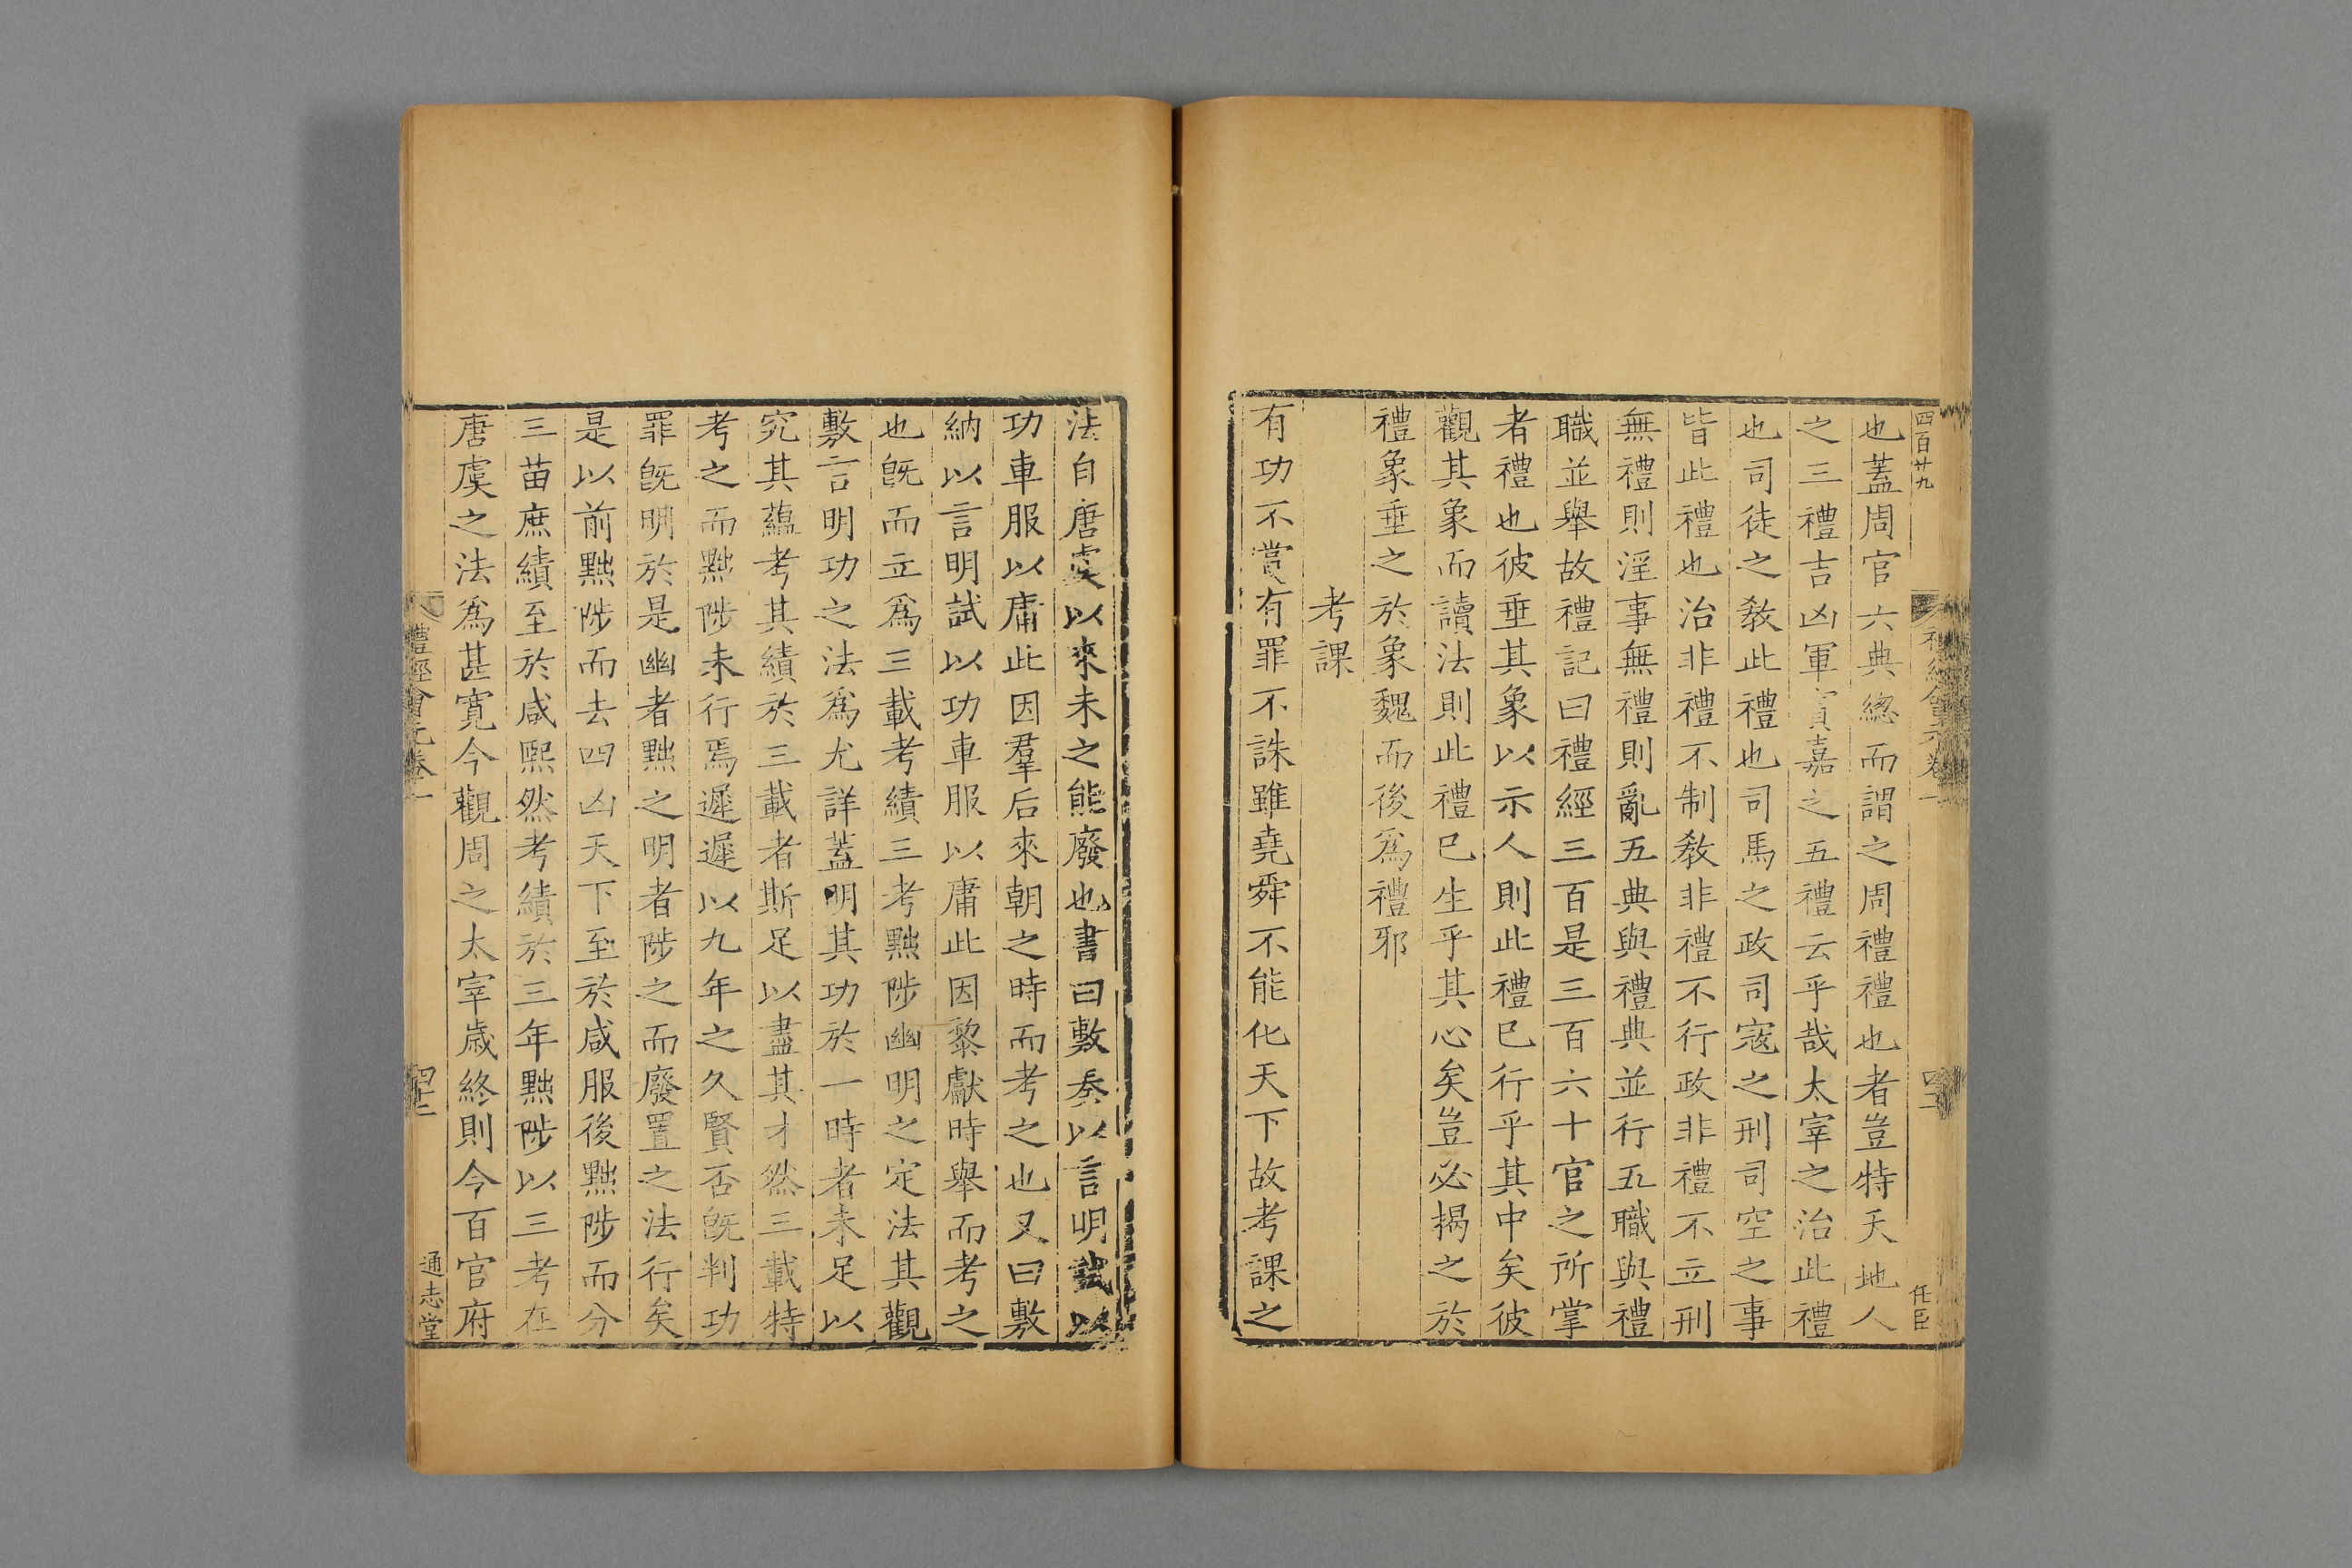 四百廿九
也蓋周官六典總而謂之周禮禮也者豈特天地人
之三禮吉凶軍賓嘉之五禮云乎哉太宰之治此禮
也司徒之敎此禮也司馬之政司寇之刑司空之事
皆此禮也治非禮不制敎非禮不行政非禮不立刑
無禮則淫事無禮則亂五典與禮典並行五職與禮
職並舉故禮記曰禮經三百是三百六十官之所掌
者禮也彼垂其象以示人則此禮已行乎其中矣彼
觀其象而讀法則此禮已生乎其心矣豈必揭之於
禮象垂之於象魏而後爲禮邪
考課
有功不賞有罪不誅雖堯舜不能化天下故考課之
任臣
法自唐虞以來未之能廢也書曰敷奏以言明試以
功車服以庸此因羣后來朝之時而考之也又曰敷
納以言明試以功車服以庸此因黎獻時舉而考之
也旣而立爲三載考績三考黜陟幽明之定法其觀
敷言明功之法爲尤詳蓋明其功於一時者未足以
究其蘊考其績於三載者斯足以盡其才然三載特
考之而黜陟未行焉遲遲以九年之久賢否旣判功
罪旣明於是幽者黜之明者陟之而廢置之法行矣
是以前黜陟而去四凶天下至於咸服後黜陟而分
三苗庶績至於咸熙然考績於三年黜陟以三考在
唐虞之法爲甚寛今觀周之太宰歲終則令百官府
禮經會元卷一
四十二
通志堂